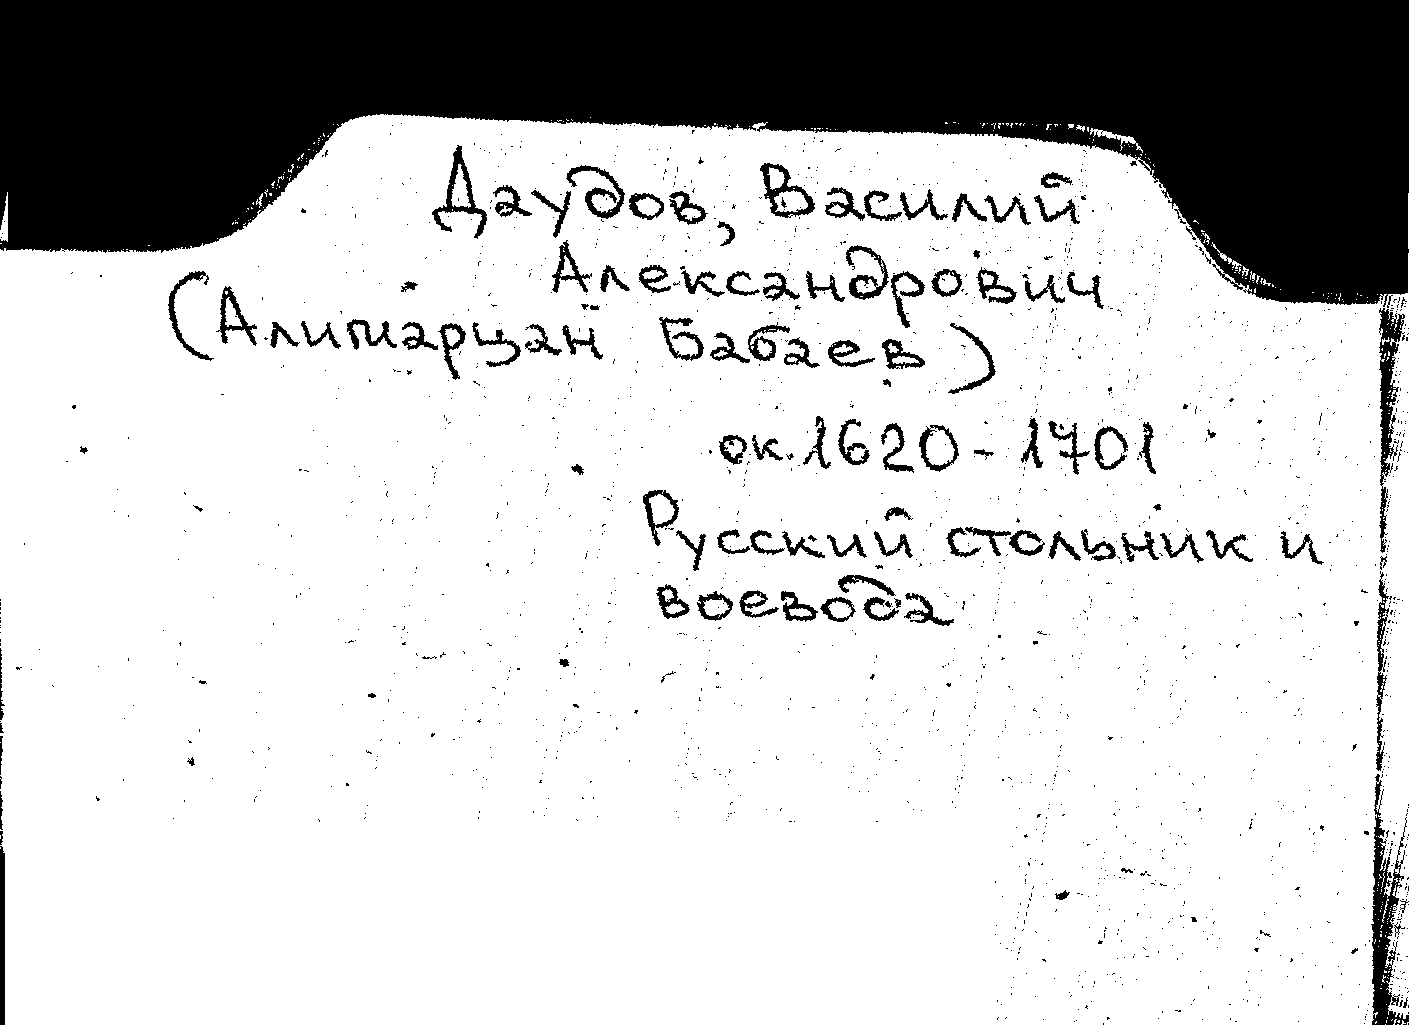 Даудов, Василий
Александрович
(Алимарцан Бабаев)
ок. 1620 - 1701
Русский стольник и
воевода